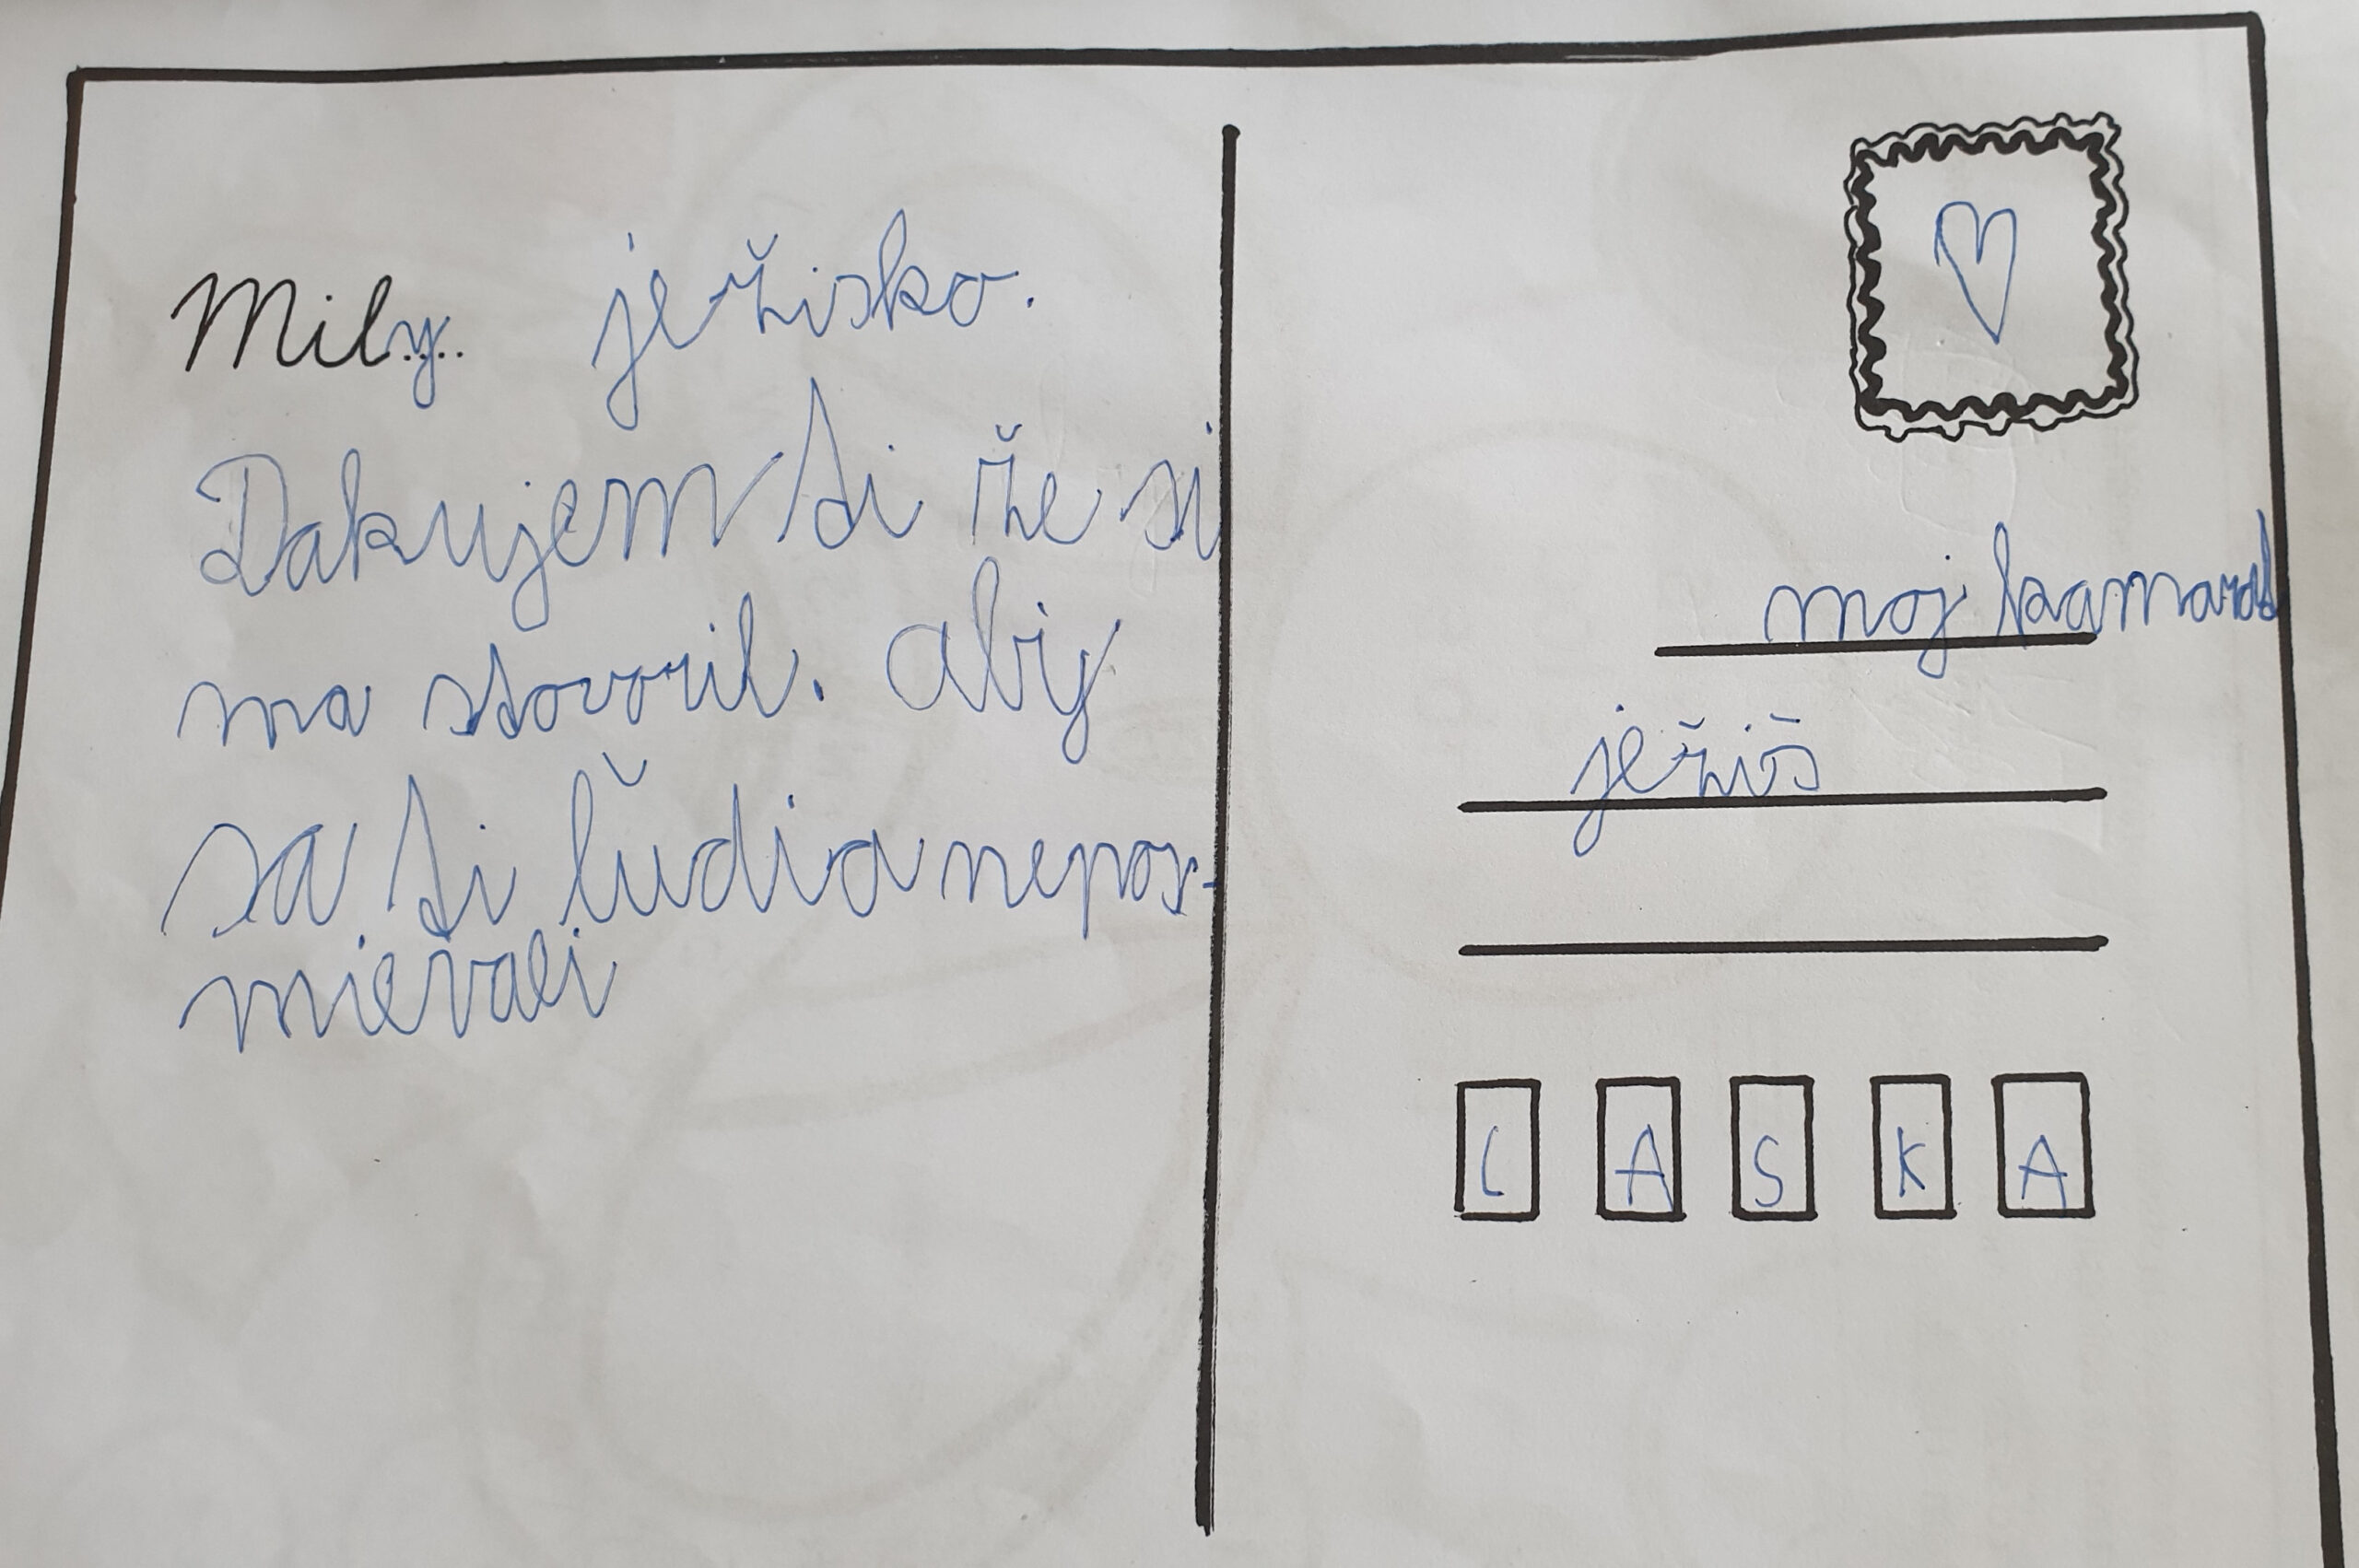 Mily.... ježisko.
Dakujem ti že si
ma stovoril. aby
sa ti ľudia nepos-
mievali
moj kamarad
ježiš
L A S K A